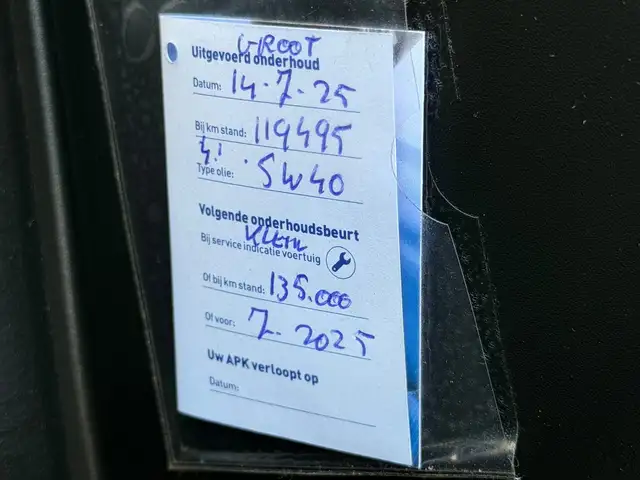 GROOT
Uitgevoerd onderhoud
Datum: 14-7-25
Bij km stand: 119495
Type olie: 5W40
Volgende onderhoudsbeurt
KLEIN
Bij service indicatie voertuig
Of bij km stand: 135.000
Of voor: 7-2025
Uw APK verloopt op
Datum: